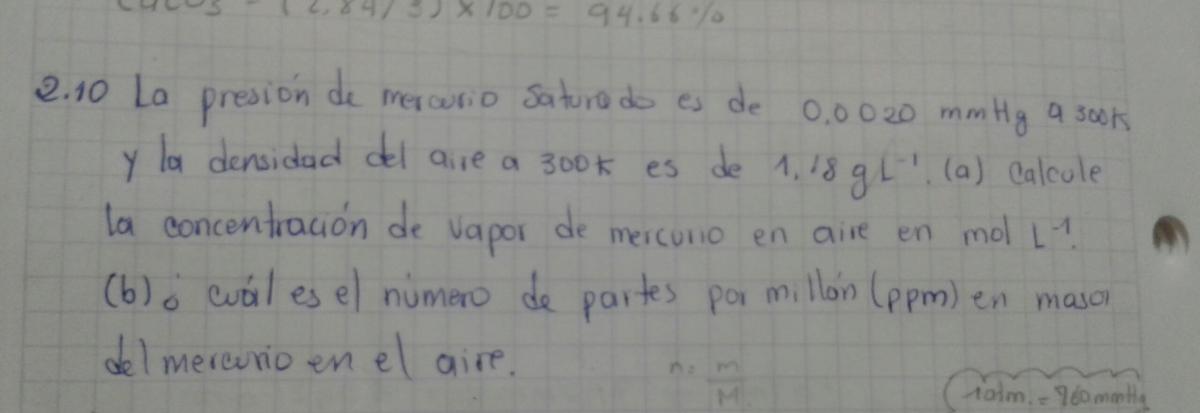 CaCO3 = (2,84/3) x 100 = 94.66%
2.10 La presión de mercurio Saturado es de 0.0020 mmHg a 300K
y la densidad del aire a 300K es de 1.18 g L⁻¹. (a) Calcule
la concentración de vapor de mercurio en aire en mol L⁻¹.
(b) ¿ cuál es el número de partes por millón (ppm) en masa
del mercurio en el aire.
n = m/M
1atm. = 760 mmHg